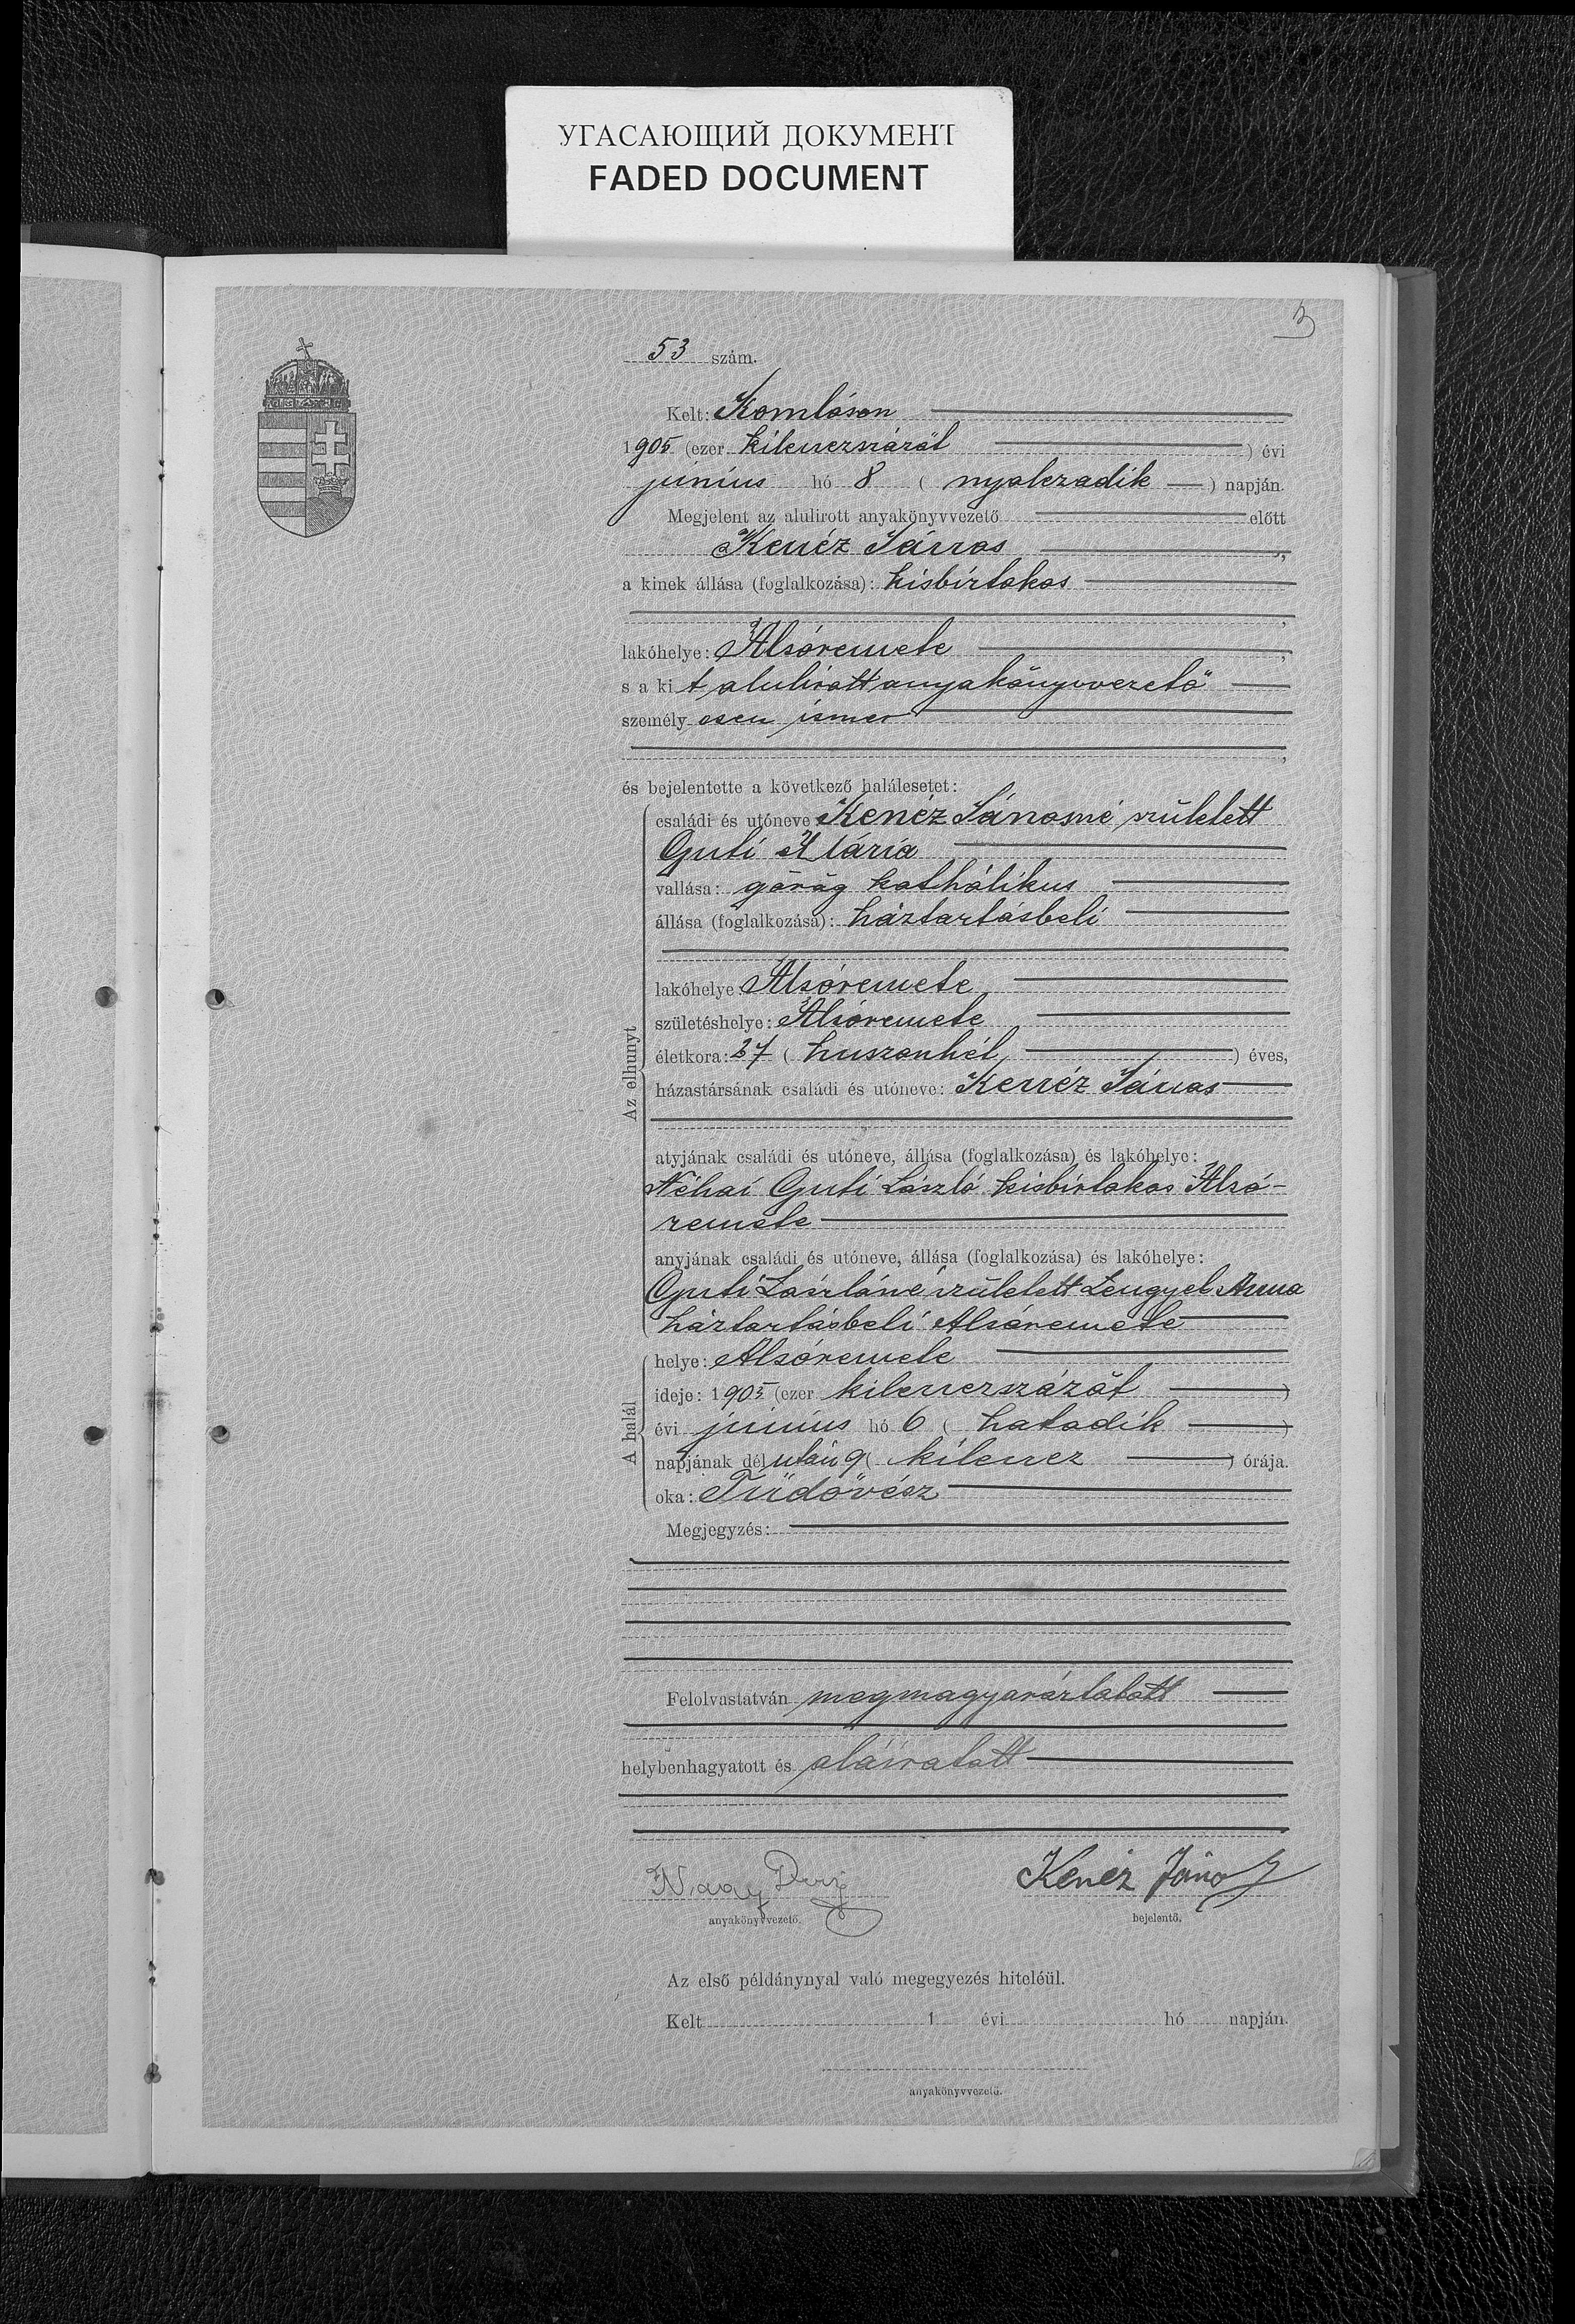 УГАСАЮЩИЙ ДОКУМЕНТ
FADED DOCUMENT
3
53 szám.
Kelt: Komlóson
1905 (ezer kilenczszázöt ) évi
junius hó 8 ( nyolczadik ) napján.
Megjelent az alulirott anyakönyvvezető előtt
Kenéz János ,
a kinek állása (foglalkozása): kisbirtokos
,
lakóhelye: Alsóremete ,
s a kit alulirott anyakönyvvezető
személyesen ismer
,
és bejelentette a következő halálesetet:
Az elhunyt
családi és utóneve Kenéz Jánosné született
Guti Mária
vallása: görög kathólikus
állása (foglalkozása): háztartásbeli
lakóhelye: Alsóremete
születéshelye: Alsóremete
életkora: 27 ( huszonhét ) éves,
házastársának családi és utóneve: Kenéz János
atyjának családi és utóneve, állása (foglalkozása) és lakóhelye:
Néhai Guti László kisbirtokos Alsó-
remete
anyjának családi és utóneve, állása (foglalkozása) és lakóhelye:
Guti Lászlóné született Lengyel Anna
háztartásbeli Alsóremete
A halál
helye: Alsóremete
ideje: 1905 (ezer kilenczszázöt )
évi junius hó 6 ( hatodik )
napjának délután 9 ( kilencz ) órája.
oka: Tüdővész
Megjegyzés:
Felolvastatván megmagyaráztatott
helybenhagyatott és aláiratott
Nagy
Kenéz János
anyakönyvvezető.
bejelentő.
Az első példánynyal való megegyezés hiteléül.
Kelt 1 évi hó napján.
anyakönyvvezető.